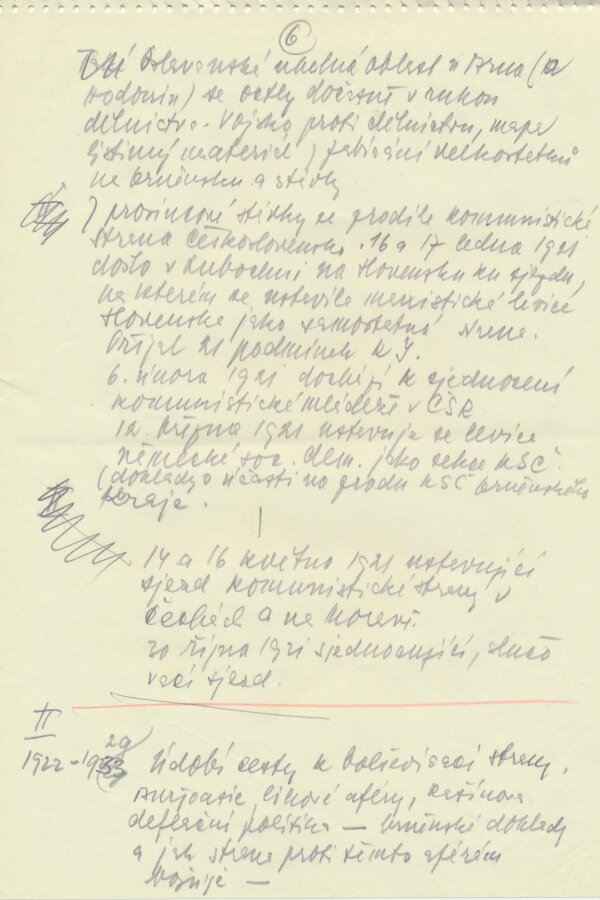 6
Oslavanské uhelná oblast u Brna (a
Hodonín) se octly dočasně v rukou
dělnictva. Vojsko proti dělnictvu, mapa
listinný materiál) zabírání velkostatků
na brněnsku a stávky
) prosincové stávky se zrodila komunistická
strana Československa. 16 a 17 ledna 1921
došlo v Lubochni na Slovensku ku sjezdu,
na kterém se ustavila marxistická levice
Slovenska jako samostatná strana.
Přijal 21 podmínek K I.
6. února 1921 dochází k sjednocení
komunistické mládeže v ČSR
12. března 1921 ustavuje se levice
německé soc. dem. jako sekce KSČ
(doklady o účasti na zrodu KSČ brněnského
kraje.
14 a 16 května 1921 ustavující
sjezd komunistické strany v
Čechách a na Moravě.
30 října 1921 sjednocující, slučo
vací sjezd.
II
29
1922-19 Údobí cesty k bolševisaci strany,
buržoasie lihové aféry, Rašínova
deflační politika — brněnské doklady
a jak strana proti těmto aférám
bojuje —